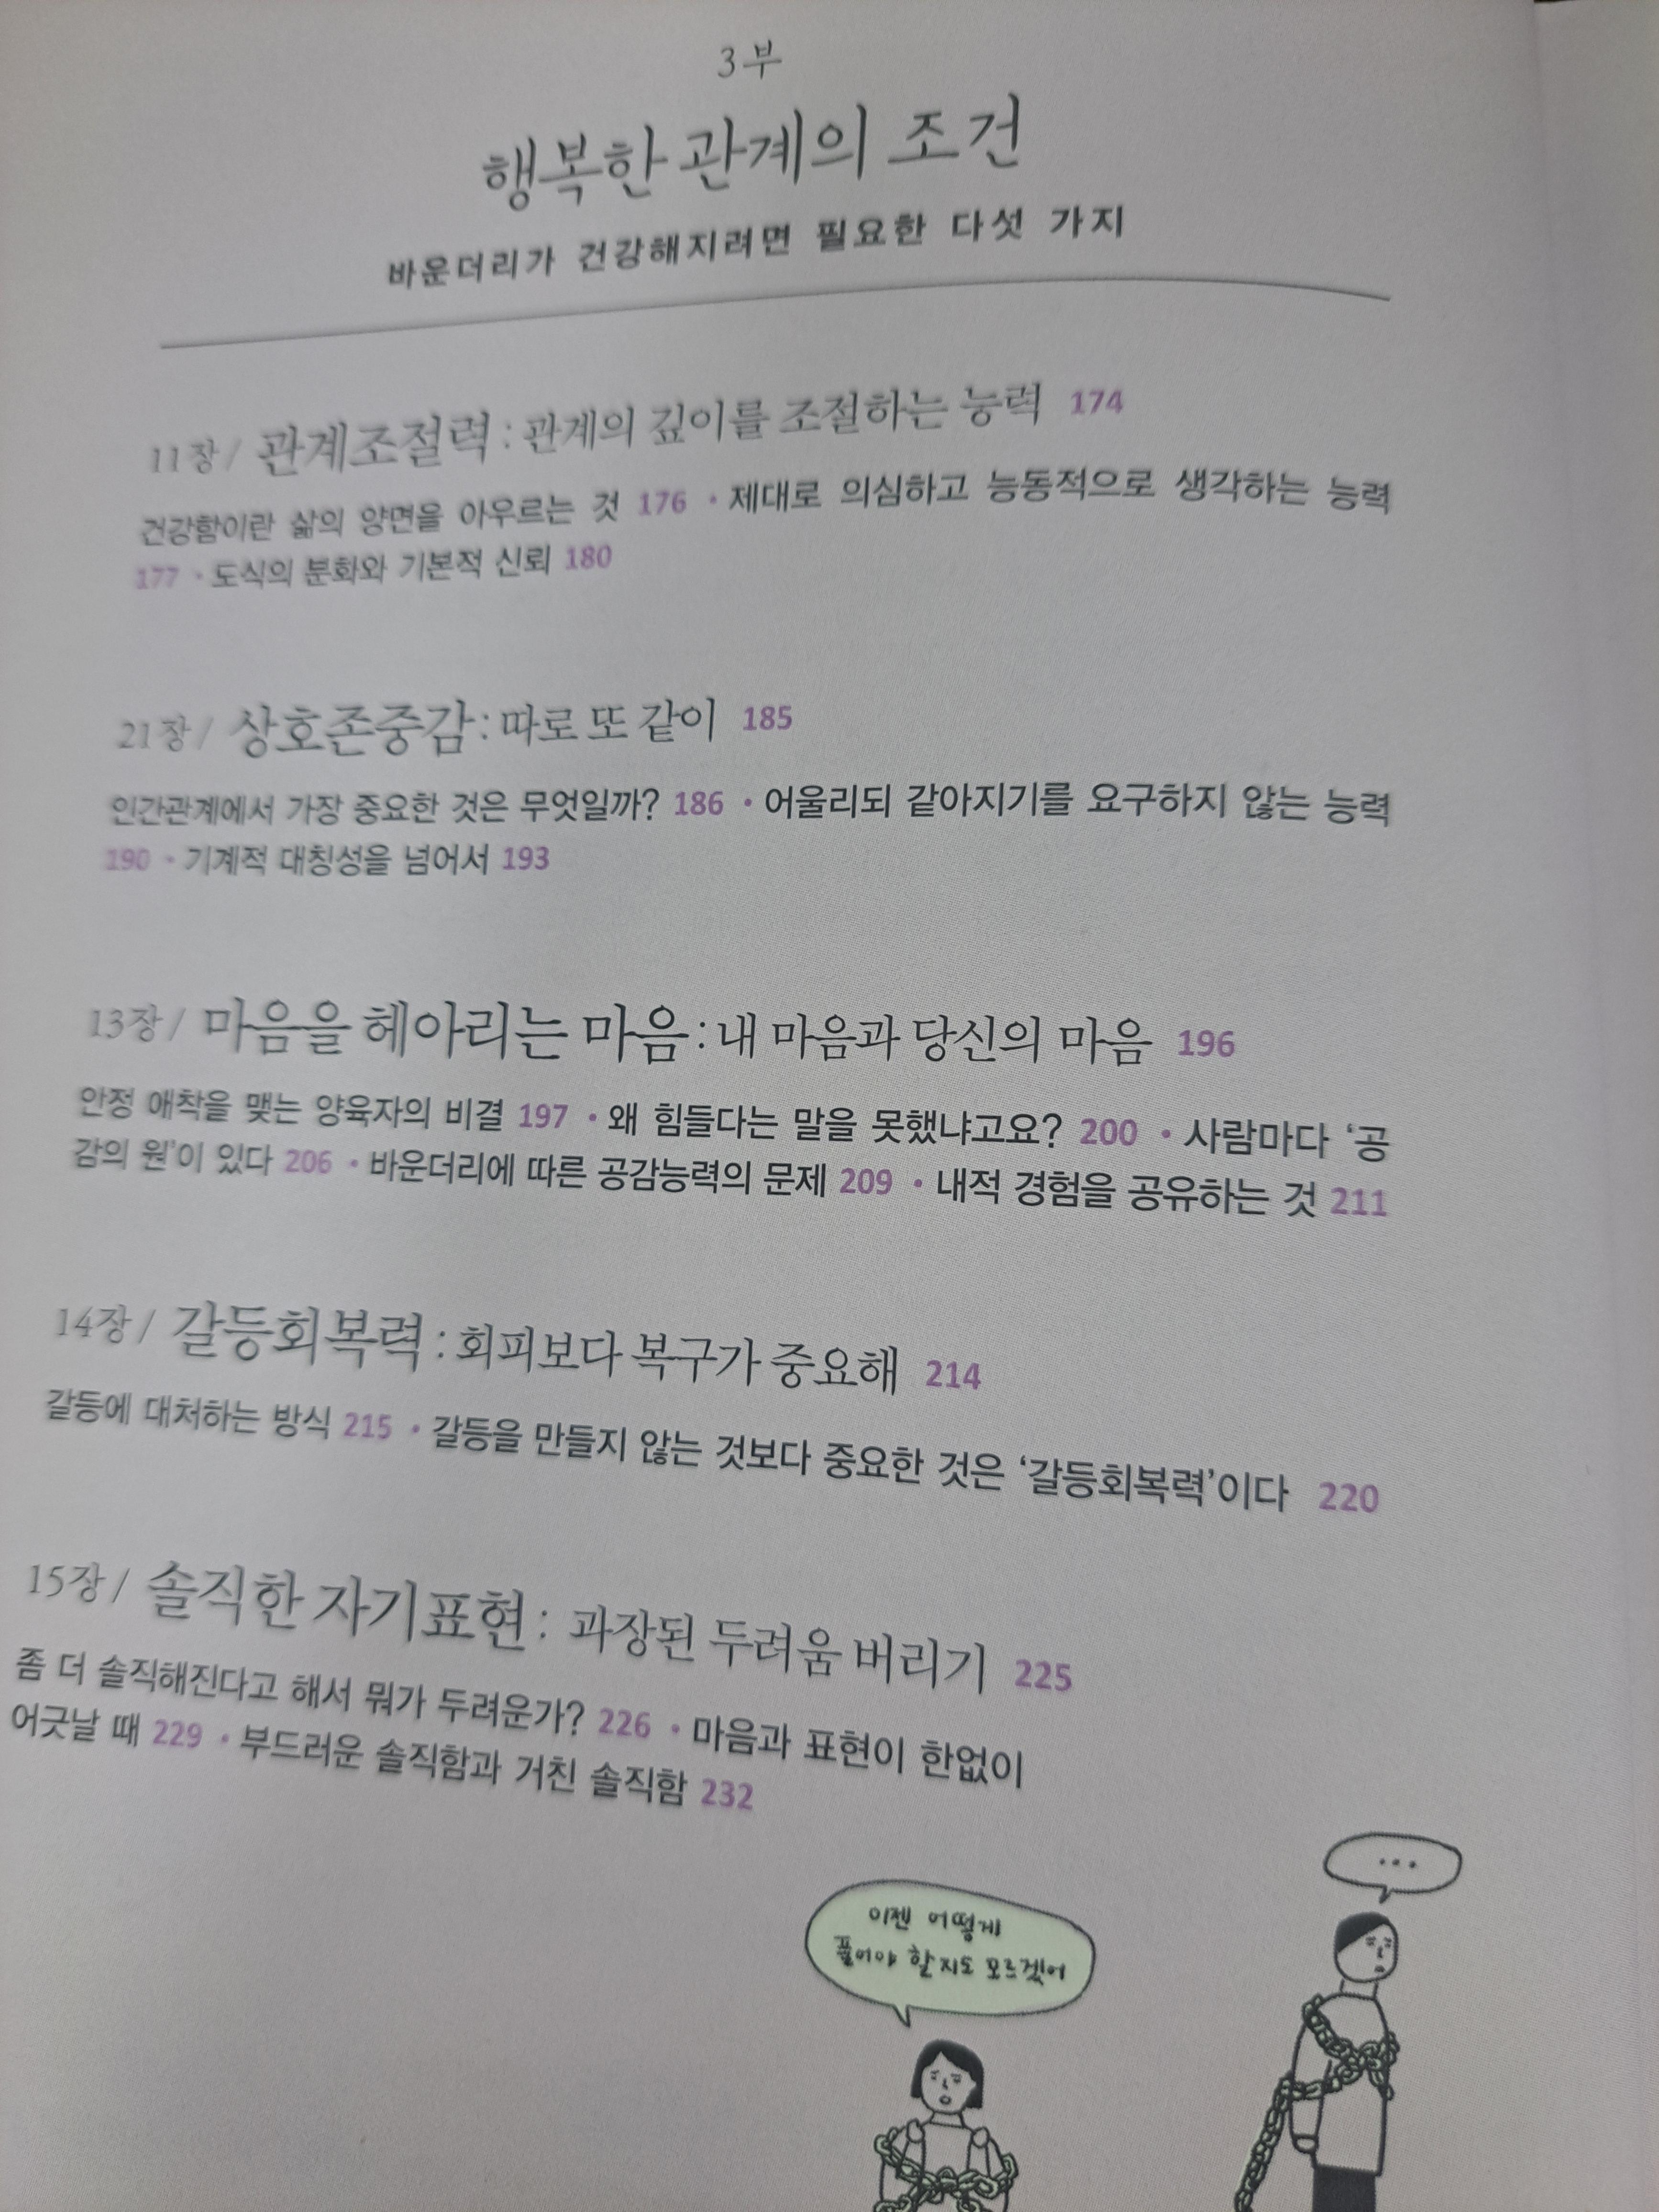 3부
행복한 관계의 조건
바운더리가 건강해지려면 필요한 다섯 가지
11장 / 관계조절력 : 관계의 깊이를 조절하는 능력 174
건강함이란 삶의 양면을 아우르는 것 176 · 제대로 의심하고 능동적으로 생각하는 능력
177 · 도식의 분화와 기본적 신뢰 180
21장 / 상호존중감 : 따로 또 같이 185
인간관계에서 가장 중요한 것은 무엇일까? 186 · 어울리되 같아지기를 요구하지 않는 능력
190 · 기계적 대칭성을 넘어서 193
13장 / 마음을 헤아리는 마음 : 내 마음과 당신의 마음 196
안정 애착을 맺는 양육자의 비결 197 · 왜 힘들다는 말을 못했냐고요? 200 · 사람마다 ‘공
감의 원’이 있다 206 · 바운더리에 따른 공감능력의 문제 209 · 내적 경험을 공유하는 것 211
14장 / 갈등회복력 : 회피보다 복구가 중요해 214
갈등에 대처하는 방식 215 · 갈등을 만들지 않는 것보다 중요한 것은 ‘갈등회복력’이다 220
15장 / 솔직한 자기표현 : 과장된 두려움 버리기 225
좀 더 솔직해진다고 해서 뭐가 두려운가? 226 · 마음과 표현이 한없이
어긋날 때 229 · 부드러운 솔직함과 거친 솔직함 232
...
이젠 어떻게
풀어야 할지도 모르겠어